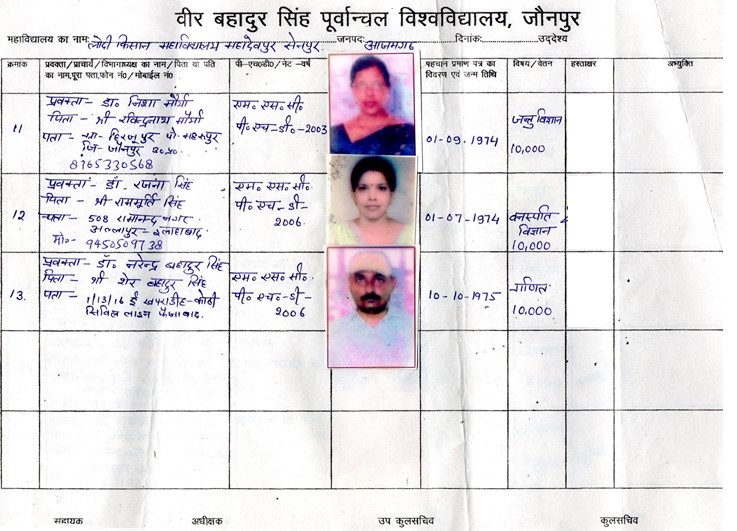 वीर बहादुर सिंह पूर्वान्चल विश्वविद्यालय, जौनपुर
महाविद्यालय का नाम: लोदी किसान महाविद्यालय महादेवपुर सेनपुर. जनपद: आजमगढ़ दिनांक: उद्देश्य
क्रमांक प्रवक्ता/प्राचार्य/विभागाध्यक्ष का नाम/पिता या पति का नाम,पूरा पता,फोन नं0/मोबाईल नं0 पी-एच0डी0/नेट -वर्ष पहचान प्रमाण पत्र का विवरण एवं जन्म तिथि विषय/वेतन हस्ताक्षर अभ्युक्ति
11 प्रवक्ता- डा० निशा मौर्या
पिता - श्री रविन्द्रनाथ मौर्या
पता - ग्रा- हिरजूपुर पो-
जि- जौनपुर उ०प्र०
8765330568
एम० एस० सी०
पी० एच-डी०-2003
01-09-1974
जन्तु विज्ञान
10,000
12 प्रवक्ता- डॉ. रंजना सिंह
पिता - श्री राममूर्ति सिंह
पता - 508 रामानन्द नगर
अल्लापुर - इलाहाबाद
मो०- 9450509738
एम० एस० सी०
पी० एच-डी-
2006.
01-07-1974
वनस्पति
विज्ञान
10,000
13. प्रवक्ता- डॉ. नरेन्द्र बहादुर सिंह
पिता - श्री शेर बहादुर सिंह
पता - 1/13/16 ई खपराडीह-कोठी
सिविल लाइन फैजाबाद.
एम० एस० सी०
पी० एच०- डी-
2006
10-10-1975
गणित
10.000
सहायक अधीक्षक उप कुलसचिव कुलसचिव